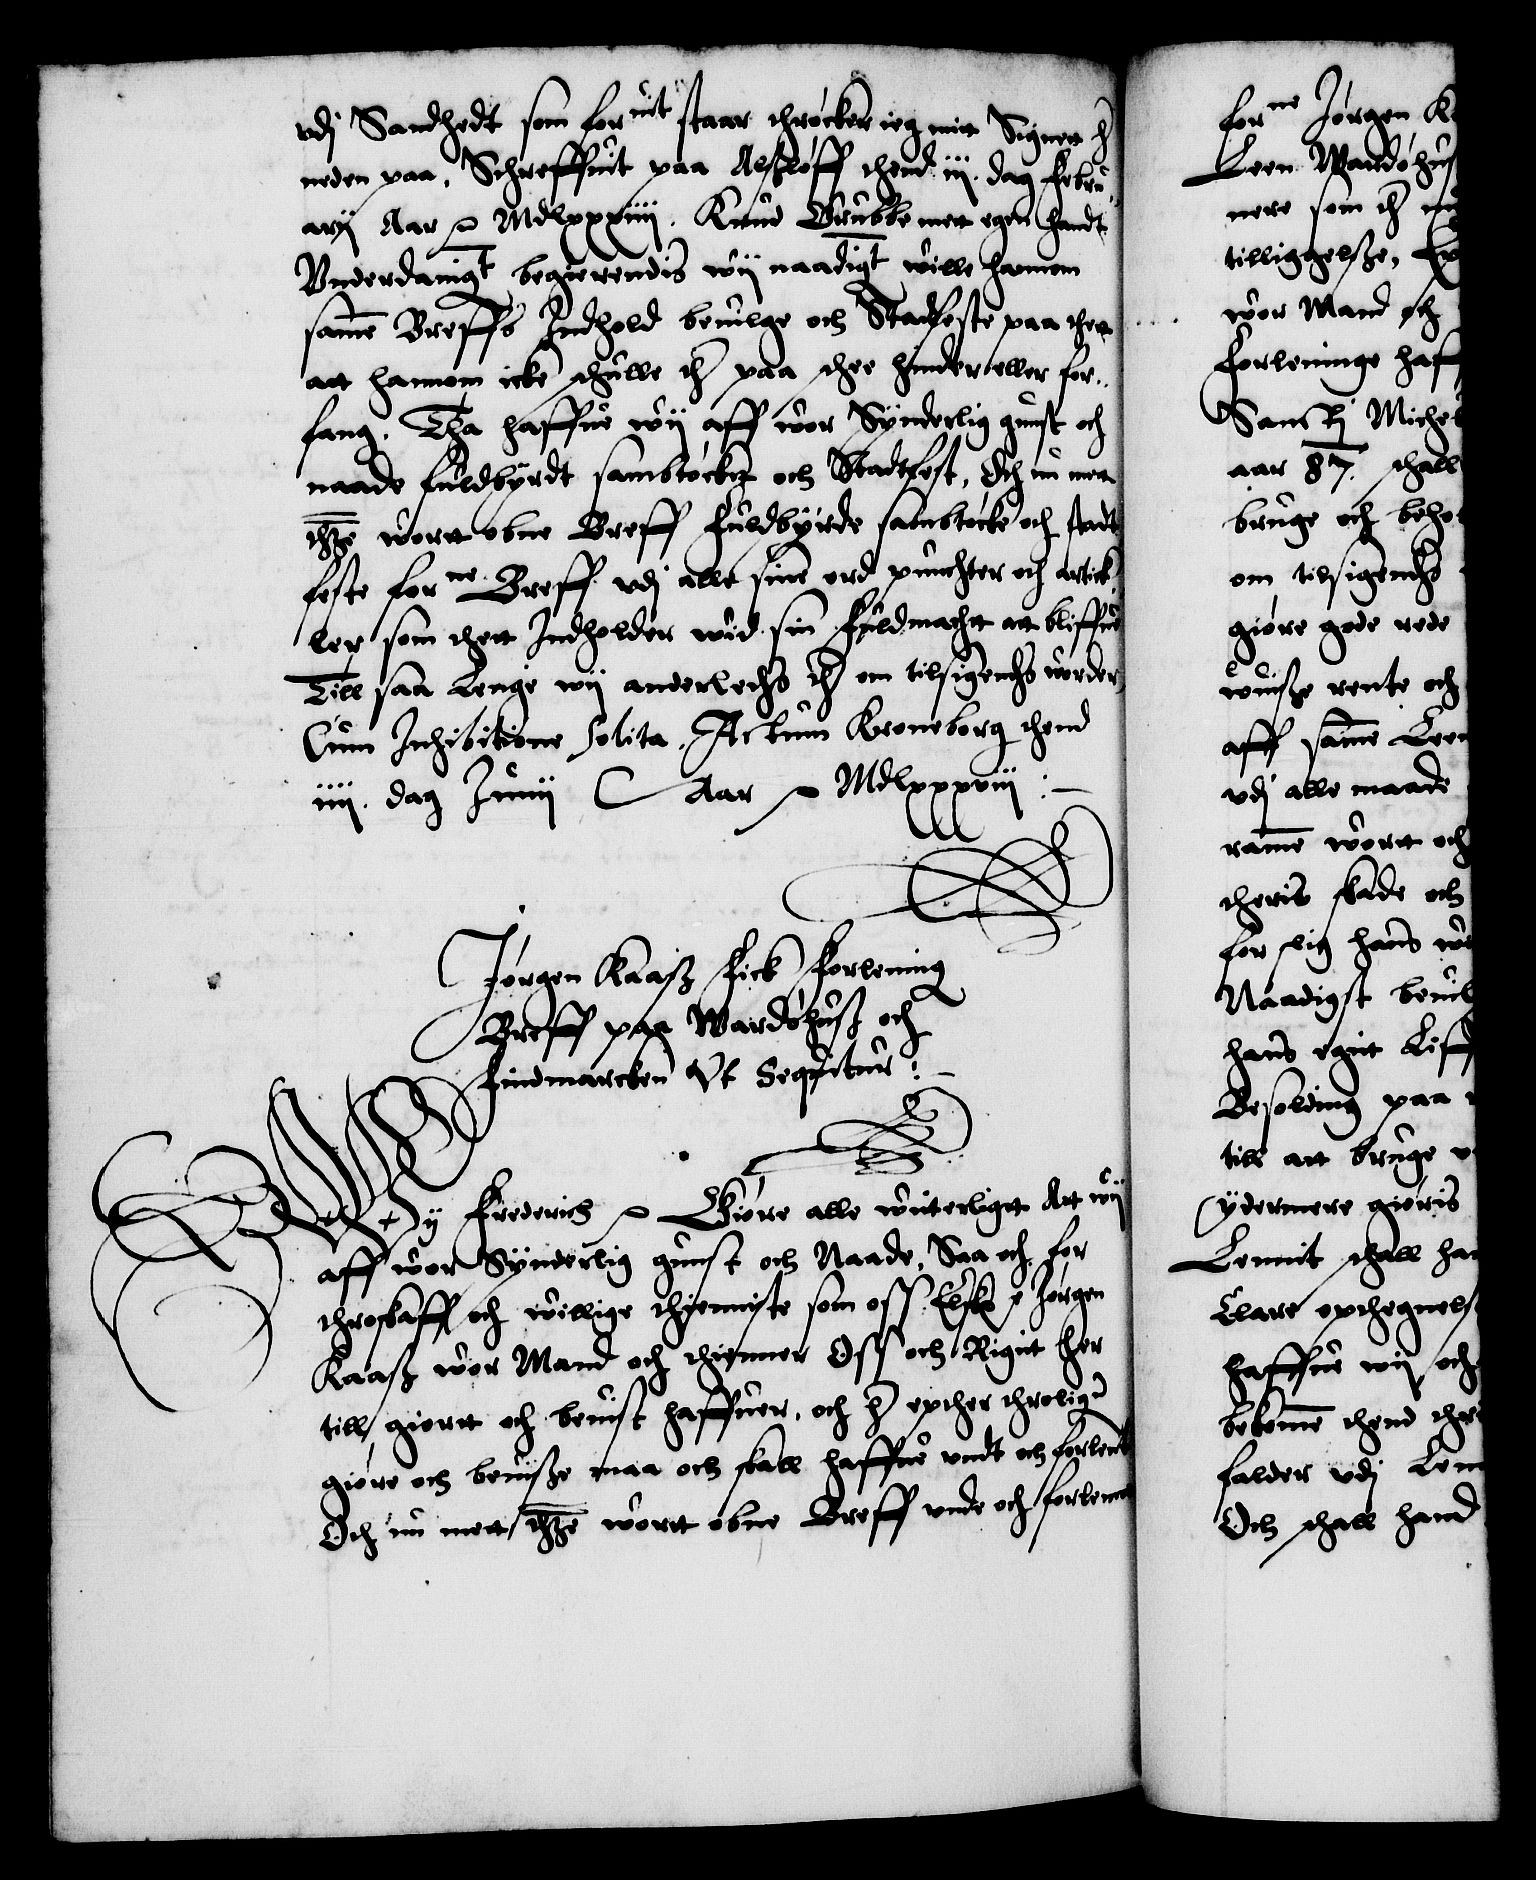 vdj Sandhedt som foruit staar throcker ieg mitt Signett h
neden paa, Schreffuit paa Alsløff thend iij dag Febru
arij Aar Mdlxxxiiij. Knud Grubbe mett egen handt
Vnderdanigt begierendis wij naadigt wille hannom
same Breffs Indhold beuilge och Stadfeste paa thett
att hannom icke schulle th paa schee hinder eller for
fang. Tha haffue wij aff wor Synderlig gunst och
naade fuldbyrdt sambtockt och Stadtfest, Och nu mett
thze wortt obne Breff fuldbyrde sambtocke och stadt
feste forne Breff vdj alle sine ord punchter och artick
ler som thett Indholder wid sin fuldmacht att bliffue
Till saa Lenge wij anderledis th om tilsigendis worder
Cum Inhibitione solita. Actum Kroneborg thend
iiij. dag Junij Aar Mdlxxxviij
Jørgen Kaasz fick Forlening
Breff paa Wardøhusz och
Findmarcken Vt Sequitur
Wij Frederich Giøre alle witterligtt Att wij
aff wor Synderlig gunst och Naade, Saa och for
throskaff och willige thienniste som oss Elske Jørgen
Kaasz wor Mand och thienner Oss och Rigit her
till giortt och beuist haffuer, och h epther throligt
giøre och beuisze maa och skall haffue vndt och forlent
Och nu mett thze wortt obne Breff vnde och forlene
forne Jørgen K
Leen Wardøhus
nere som th nu
tilliggelsze,
wor Mand och
Forleninge haff
Sancti Michel
aar 87. schall
bruge och beho
om tilsigendis
giøre gode rede
wuisze rente och
aff same Leen
vdj alle maade
rame wortt och
theris skade och
for slig hans
Naadigst beuil
hans egit Liff
Besolding paa
till att bruge
ydermere giøris
Lennit schall ha
Clare opthegnels
haffue wij och
bekome thend
falder vdj Len
Och schall hand